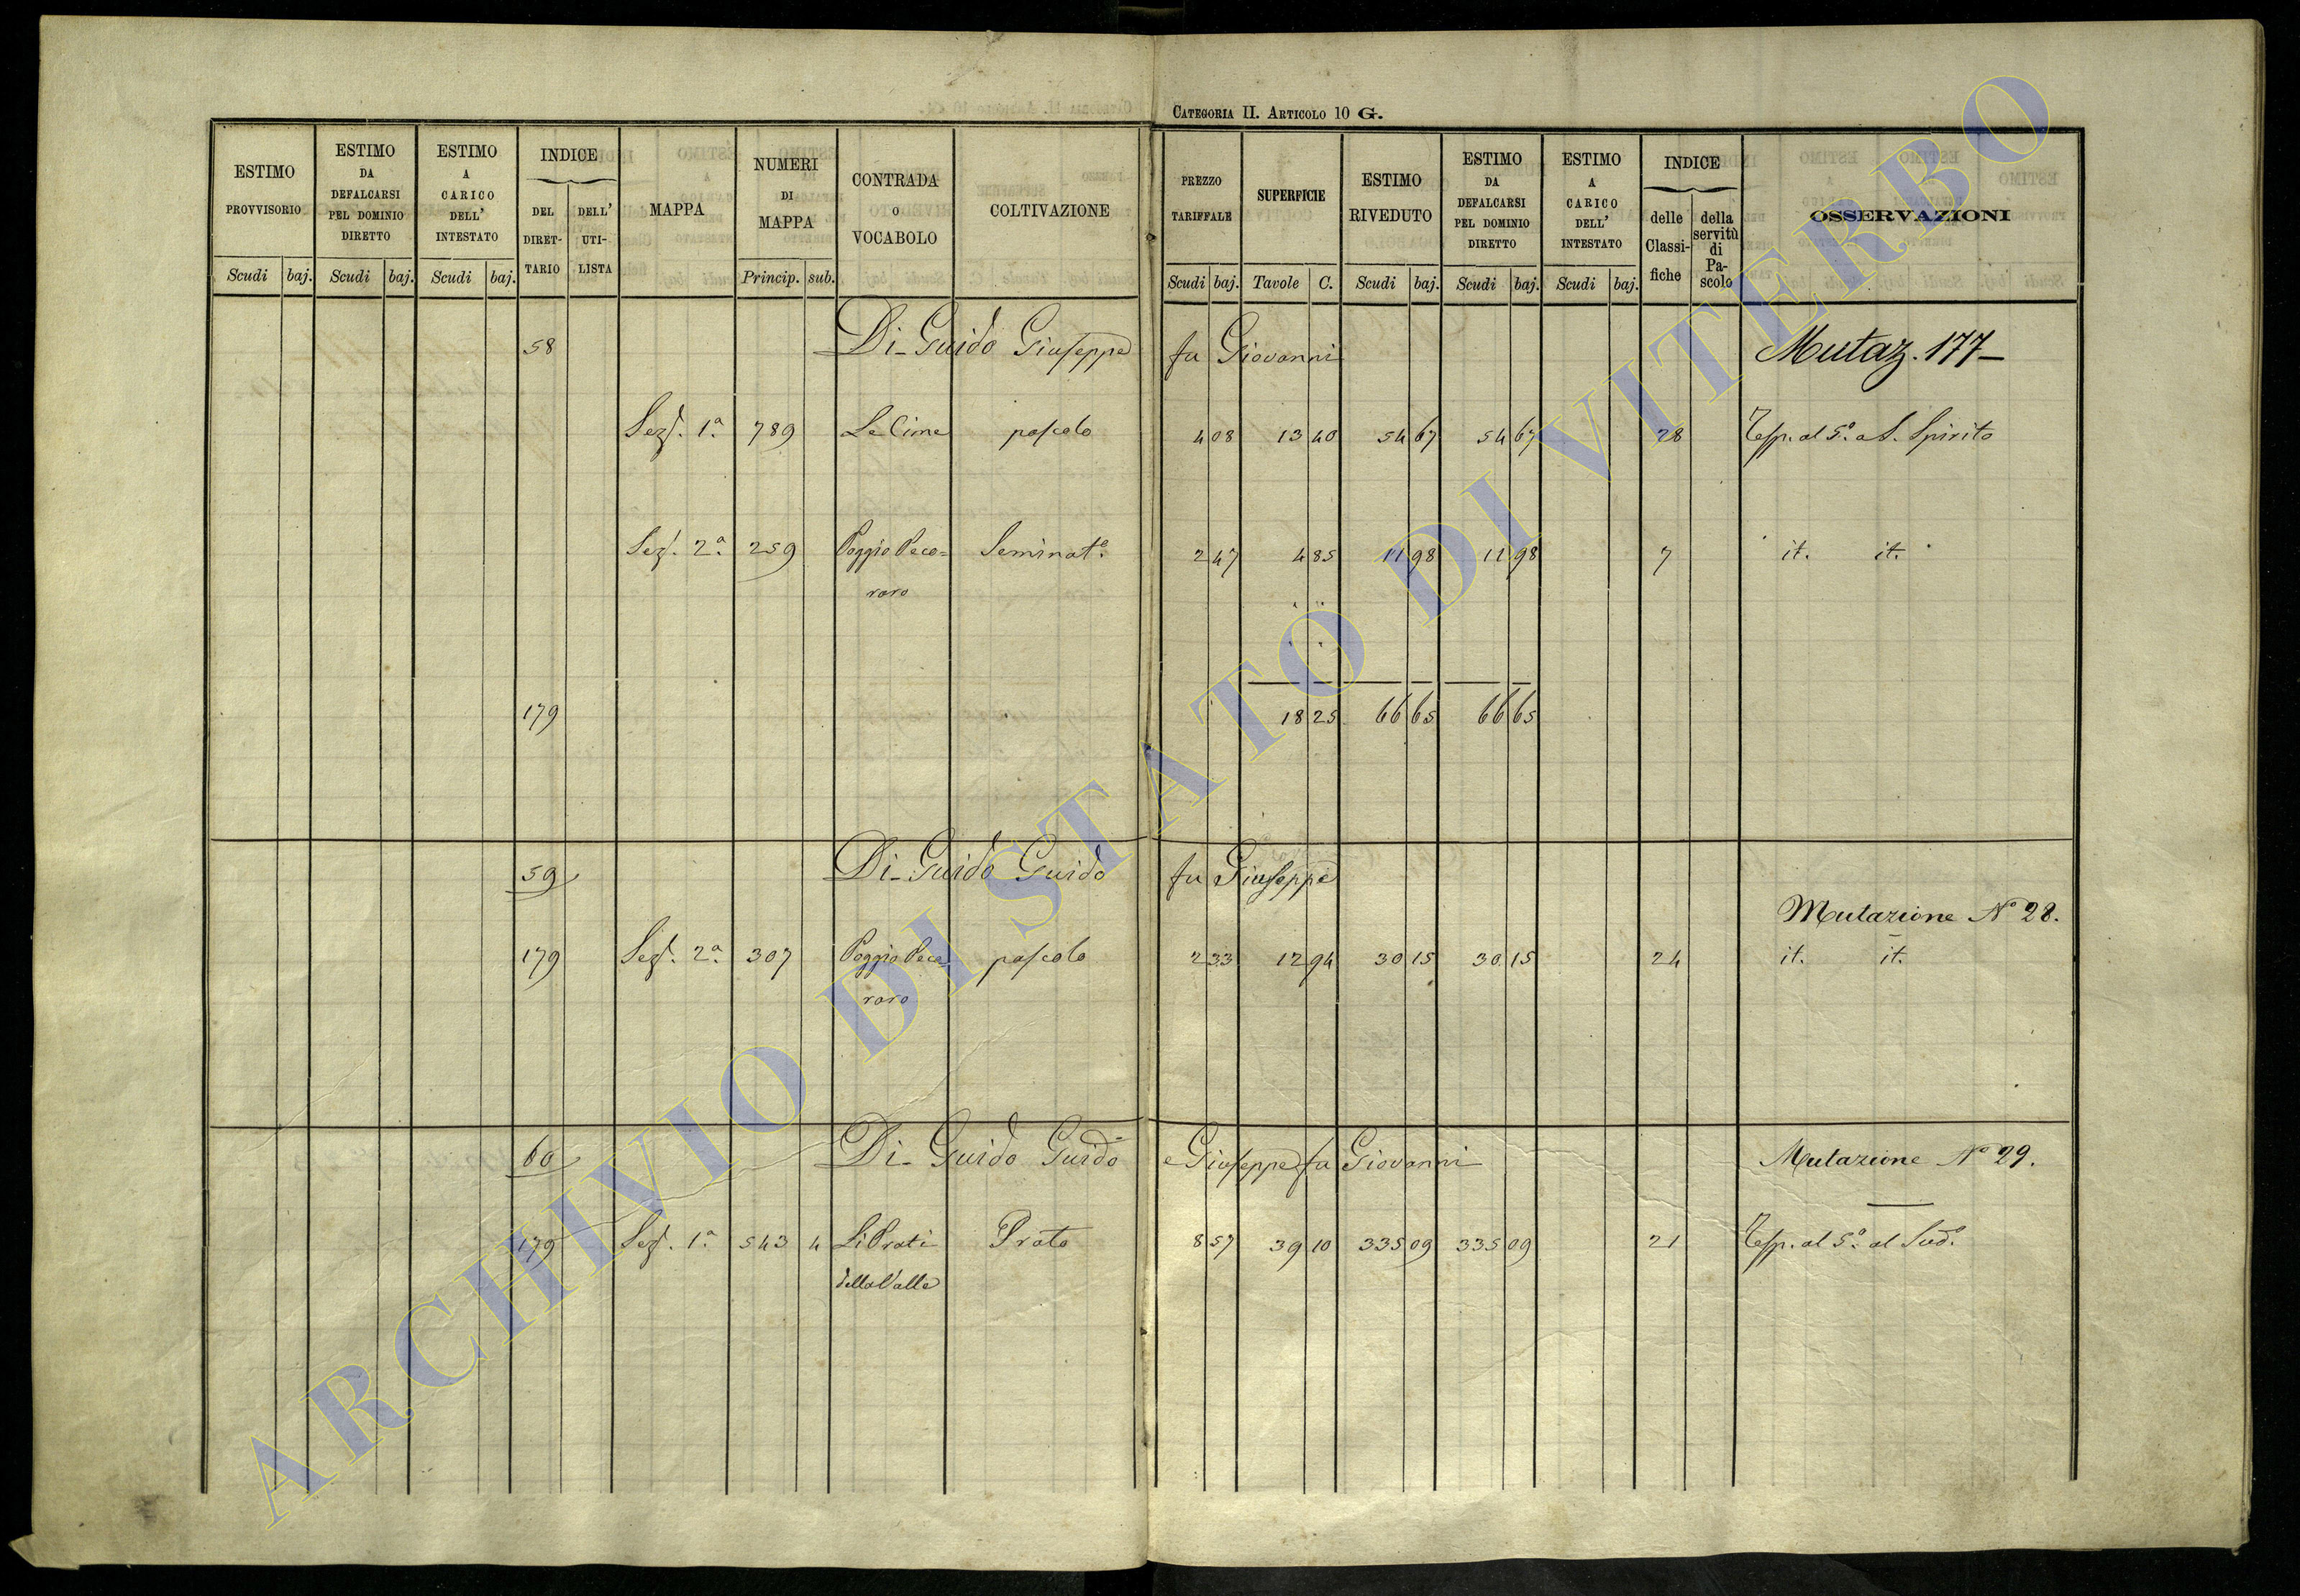 CATEGORIA II. ARTICOLO 10 G.
ESTIMO PROVVISORIO
ESTIMO DA DEFALCARSI PEL DOMINIO DIRETTO
ESTIMO A CARICO DELL' INTESTATO
INDICE
DEL DIRET-TARIO
DELL' UTI-LISTA
MAPPA
NUMERI DI MAPPA
CONTRADA O VOCABOLO
COLTIVAZIONE
PREZZO TARIFFALE
SUPERFICIE
ESTIMO RIVEDUTO
ESTIMO DA DEFALCARSI PEL DOMINIO DIRETTO
ESTIMO A CARICO DELL' INTESTATO
INDICE
delle Classi-fiche
della servitù di Pa-scolo
OSSERVAZIONI
Scudi baj. Scudi baj. Scudi baj. Princip. sub. Scudi baj. Tavole C. Scudi baj. Scudi baj. Scudi baj.
58 Di-Guido Giuseppe fu Giovanni Mutaz. 177-
Sez. 1ª 789 Le Cime pascolo 4 08 13 40 54 67 54 67 28 Resp. al 5º a S. Spirito
Sez. 2ª 259 Poggio Peco= Seminatº 2 47 4 85 11 98 11 98 7 it. it.
raro
179 18 25 66 65 66 65
59 Di-Guido Guido fu Giuseppe
Mutazione Nº 28.
179 Sez. 2ª 307 Poggio Peco= pascolo 2 33 12 94 30 15 30 15 24 it. it.
raro
60 Di-Guido Guido e Giuseppe fu Giovanni Mutazione Nº 29.
179 Sez. 1ª 543 4 Li Prati Prato 8 57 39 10 335 09 335 09 21 Resp. al 5º al Sudº
della Valle
ARCHIVIO DI STATO DI VITERBO